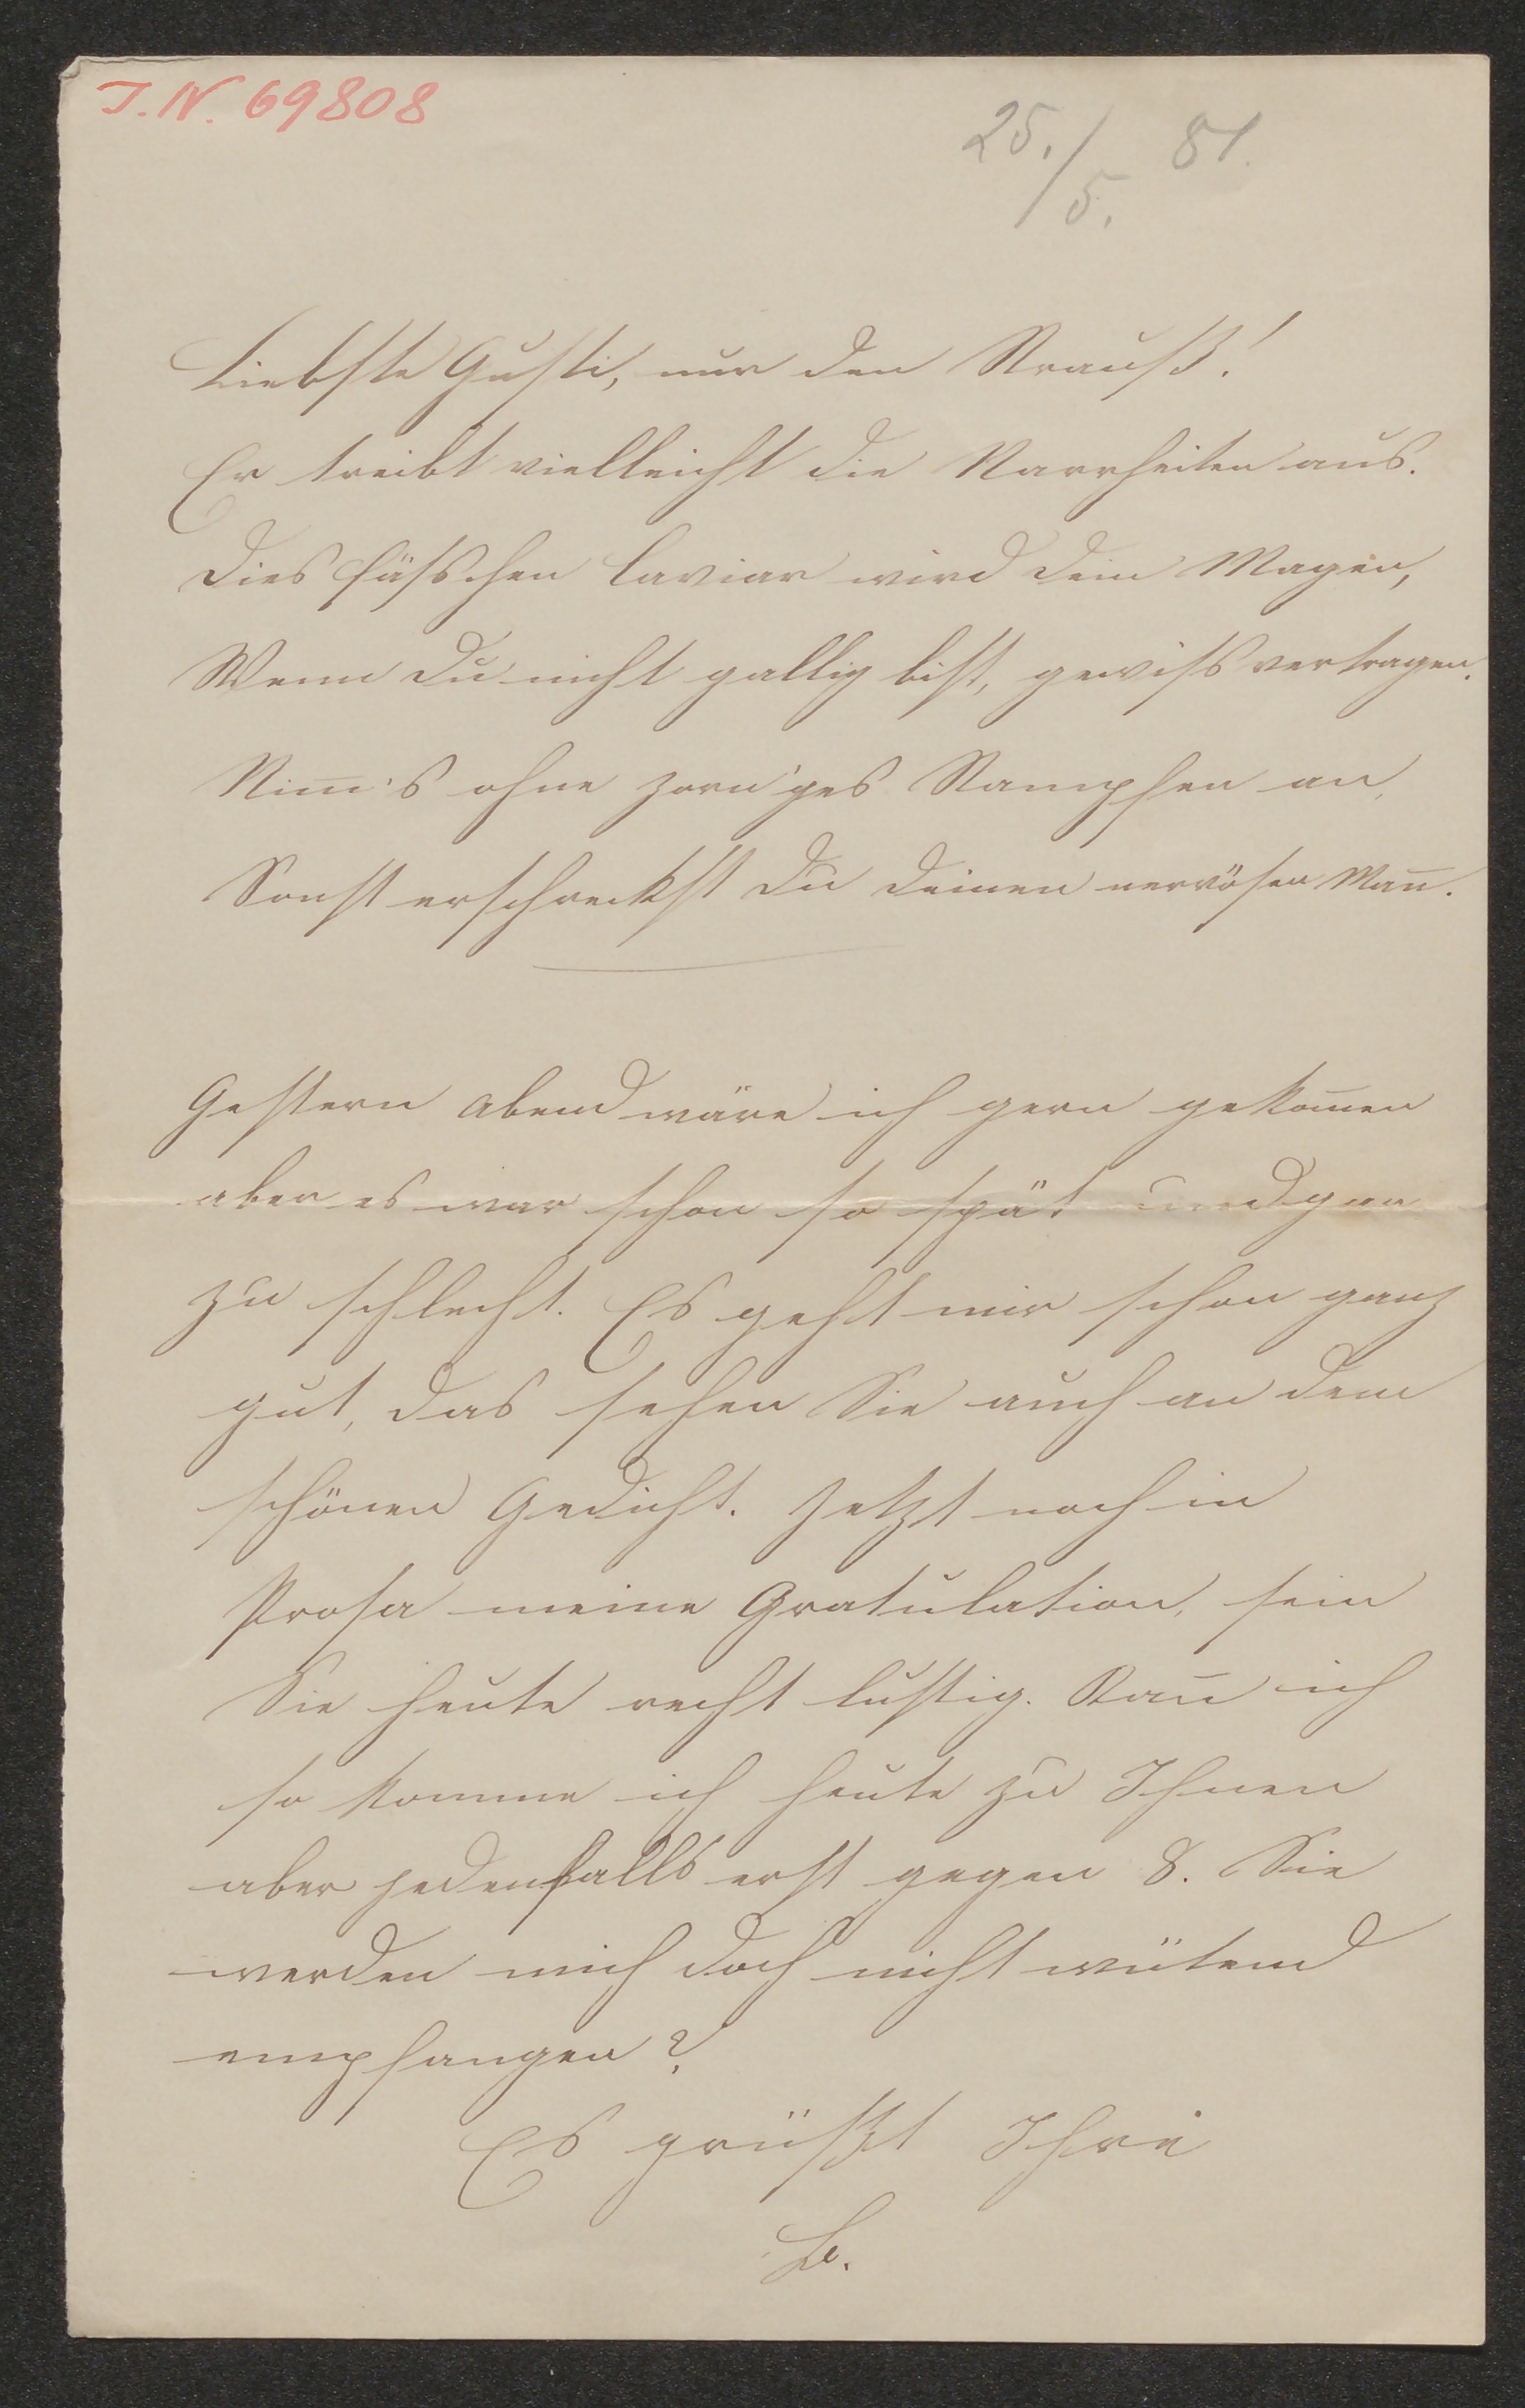 I. N. 69808
25./5. 81.
Liebste Gusti, nur den Strauß!
Er treibt vielleicht die Narrheiten aus.
Dies Fässchen Caviar wird dein Magen,
Wenn Du nicht gallig bist, gewiss vertragen.
Nim̅'s ohne zorn'ges Stampfen an,
Sonst erschreckst Du Deinen nervösen Man̅.
Gestern Abend wäre ich gern gekom̅en
aber es war schon so spät und gar
zu schlecht. Es geht mir schon ganz
gut, das sehen Sie auch an dem
schönen Gedicht. Jetzt noch in
Prosa meine Gratulation, sein
Sie heute recht lustig. Kan̅ ich
so komme ich heute zu Ihnen
aber jedenfalls erst gegen 8. Sie
werden mich doch nicht wütend
empfangen?
Es grüßt Ihre